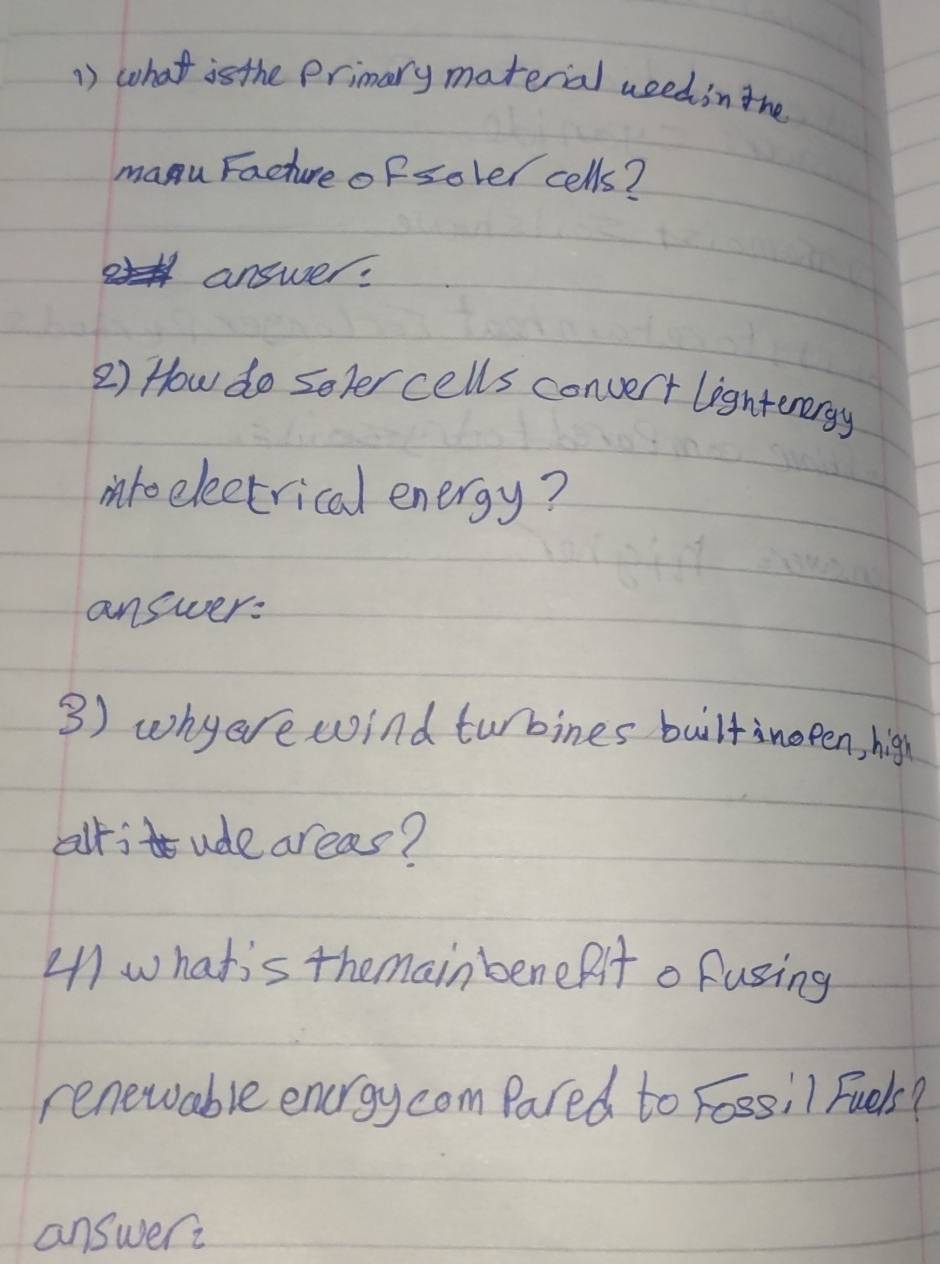 1) what is the primary material used in the
manufacture of soler cells?
answer:
2) How do soler cells convert light energy
into electrical energy?
answer:
3) why are wind turbines built in open, high
altitude areas?
4) what is the main benefit of using
renewable energy compared to Fossil Fuels?
answer: